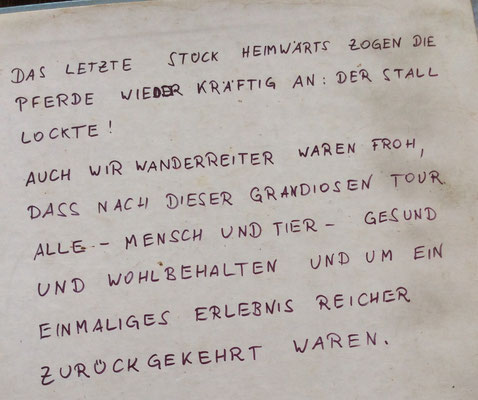 DAS LETZTE STÜCK HEIMWÄRTS ZOGEN DIE
PFERDE WIEDER KRÄFTIG AN: DER STALL
LOCKTE!
AUCH WIR WANDERREITER WAREN FROH,
DASS NACH DIESER GRANDIOSEN TOUR
ALLE - MENSCH UND TIER - GESUND
UND WOHLBEHALTEN UND UM EIN
EINMALIGES ERLEBNIS REICHER
ZURÜCKGEKEHRT WAREN.